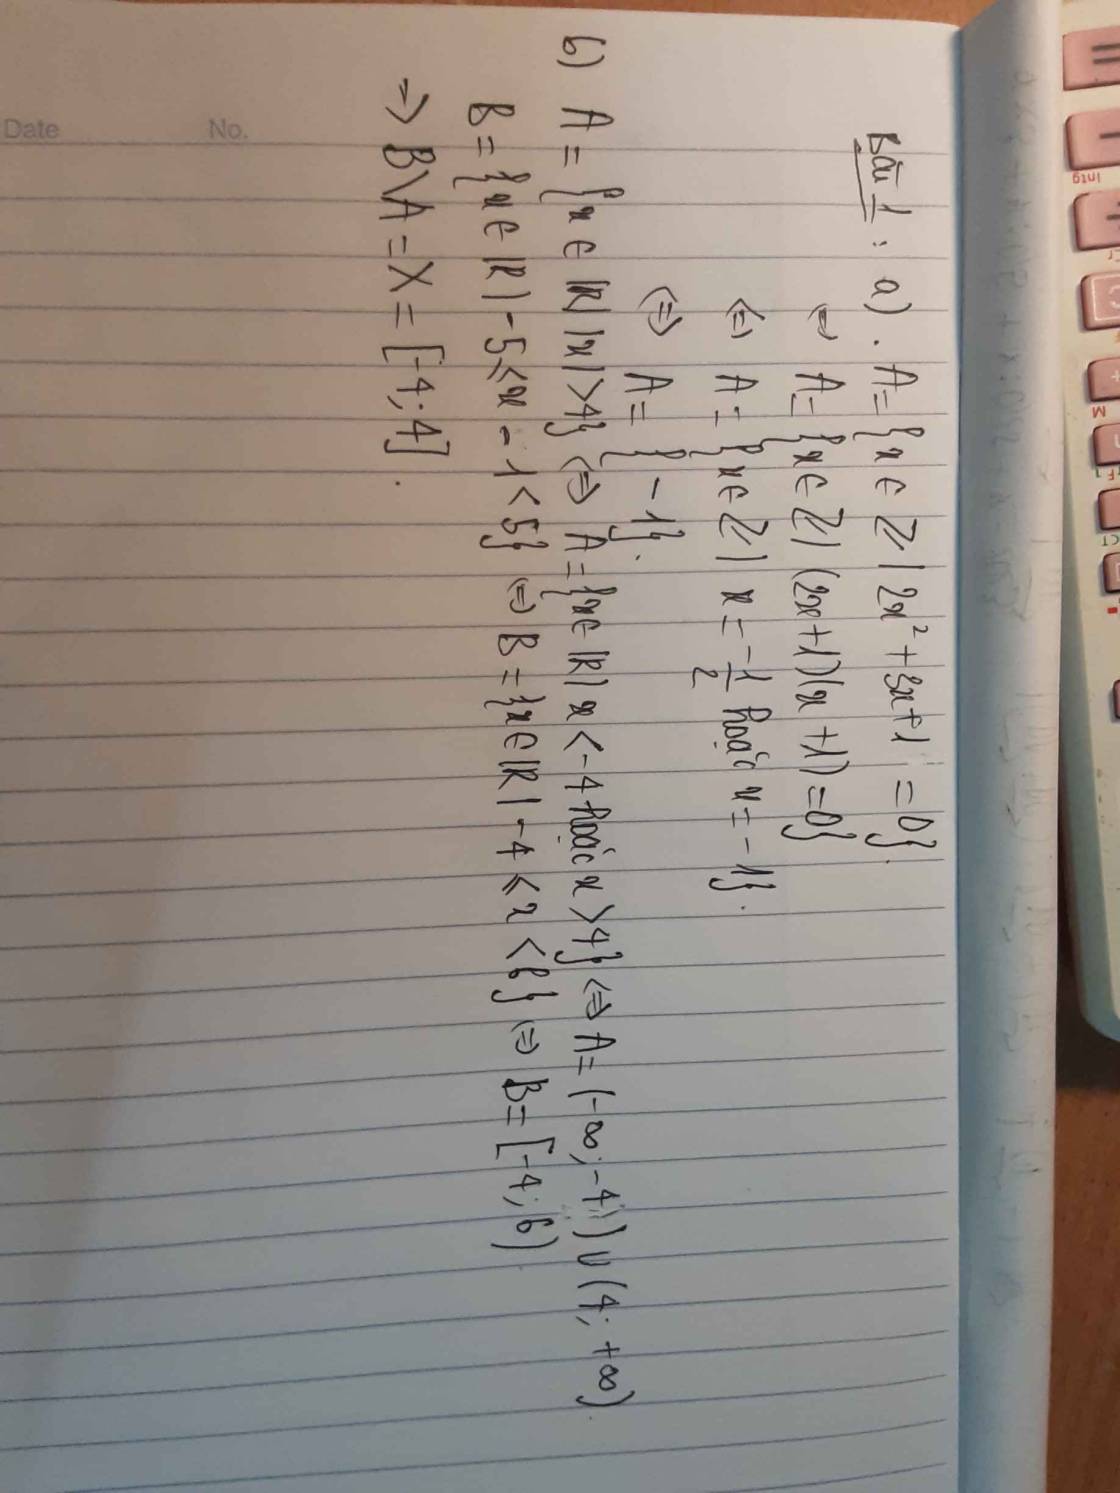 Bài 1: a). A = {x ∈ Z | 2x² + 3x + 1 = 0}.
⇔ A = {x ∈ Z | (2x+1)(x+1) = 0}
⇔ A = {x ∈ Z | x = -1/2 hoặc x = -1}.
⇔ A = {-1}.
b) A = {x ∈ R | |x| > 4} ⇔ A = {x ∈ R | x < -4 hoặc x > 4} ⇔ A = (-∞; -4) ∪ (4; +∞)
B = {x ∈ R | -5 ≤ x - 1 < 5} ⇔ B = {x ∈ R | -4 ≤ x < 6} ⇔ B = [-4; 6)
⇒ B\A = X = [-4; 4].
Date No.
Intg
M